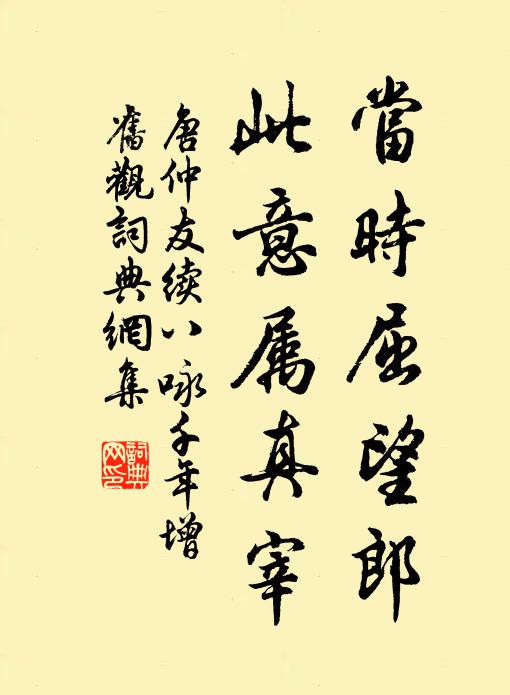 當時屈望郎
此意属真宰
唐仲友续八咏千年增
舊觀詞典網集
詞典网印